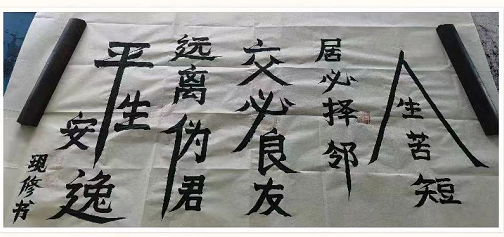 人生苦短
居必择邻
交必良友
远离伪君
平生安逸
现修书